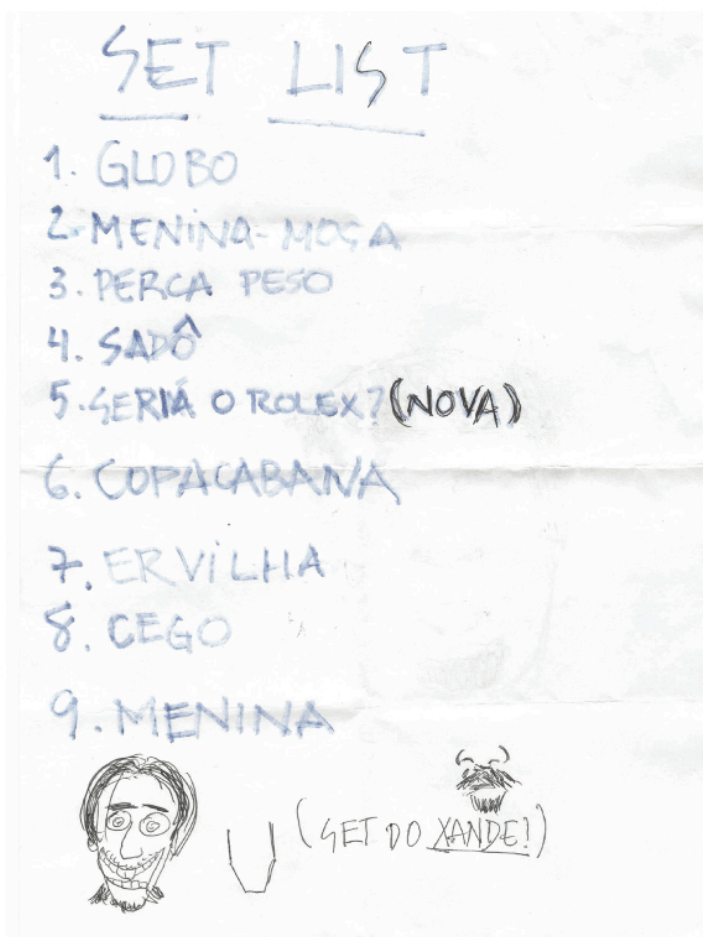 SET LIST
1. GLOBO
2. MENINA-MOÇA
3. PERCA PESO
4. SADÔ
5. SERIÁ O ROLEX? (NOVA)
6. COPACABANA
7. ERVILHA
8. CEGO
9. MENINA
(SET DO XANDE!)